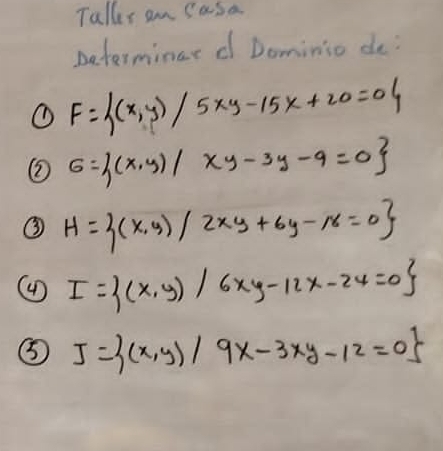 Taller en Casa
Determinar el Dominio de:
① F = {(x,y) / 5xy - 15x + 20 = 0}
② G = {(x,y) / xy - 3y - 9 = 0}
③ H = {(x,y) / 2xy + 6y - 18 = 0}
④ I = {(x,y) / 6xy - 12x - 24 = 0}
⑤ J = {(x,y) / 9x - 3xy - 12 = 0}